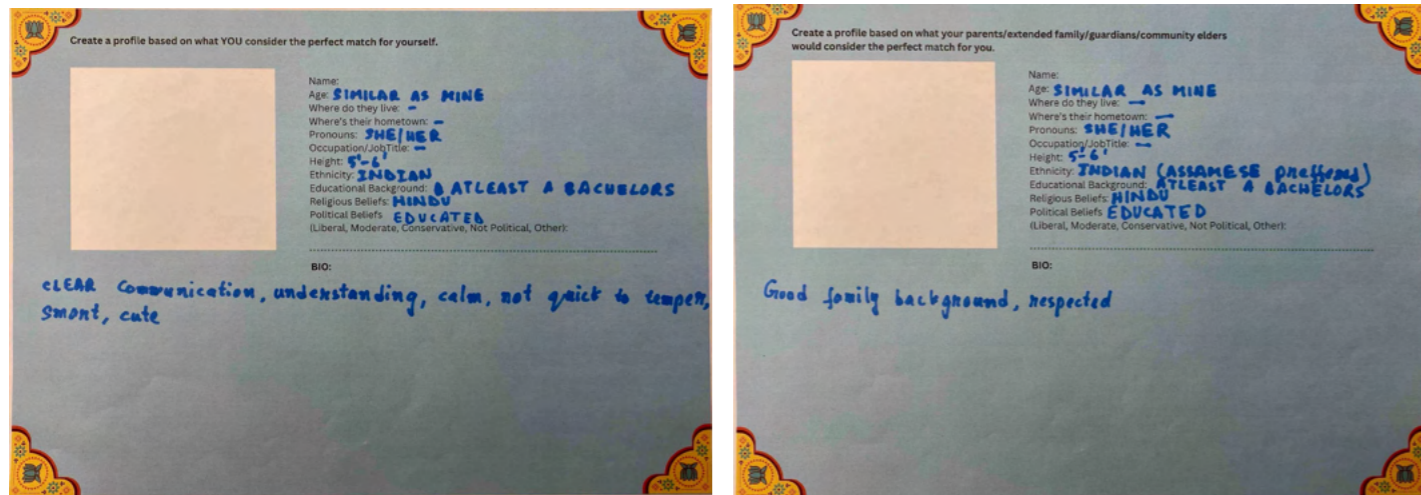 Create a profile based on what YOU consider the perfect match for yourself.
Name:
Age: SIMILAR AS MINE
Where do they live: -
Where's their hometown: -
Pronouns: SHE/HER
Occupation/JobTitle: -
Height: 5'-6'
Ethnicity: INDIAN
Educational Background: ATLEAST A BACHELORS
Religious Beliefs: HINDU
Political Beliefs EDUCATED
(Liberal, Moderate, Conservative, Not Political, Other):
BIO:
cLEAR Communication, understanding, calm, not quick to temper,
Smart, cute
Create a profile based on what your parents/extended family/guardians/community elders
would consider the perfect match for you.
Name:
Age: SIMILAR AS MINE
Where do they live: -
Where's their hometown: -
Pronouns: SHE/HER
Occupation/JobTitle: -
Height: 5'-6'
Ethnicity: INDIAN (ASSAMESE preffered)
Educational Background: ATLEAST A BACHELORS
Religious Beliefs: HINDU
Political Beliefs EDUCATED
(Liberal, Moderate, Conservative, Not Political, Other):
BIO:
Good family background, respected